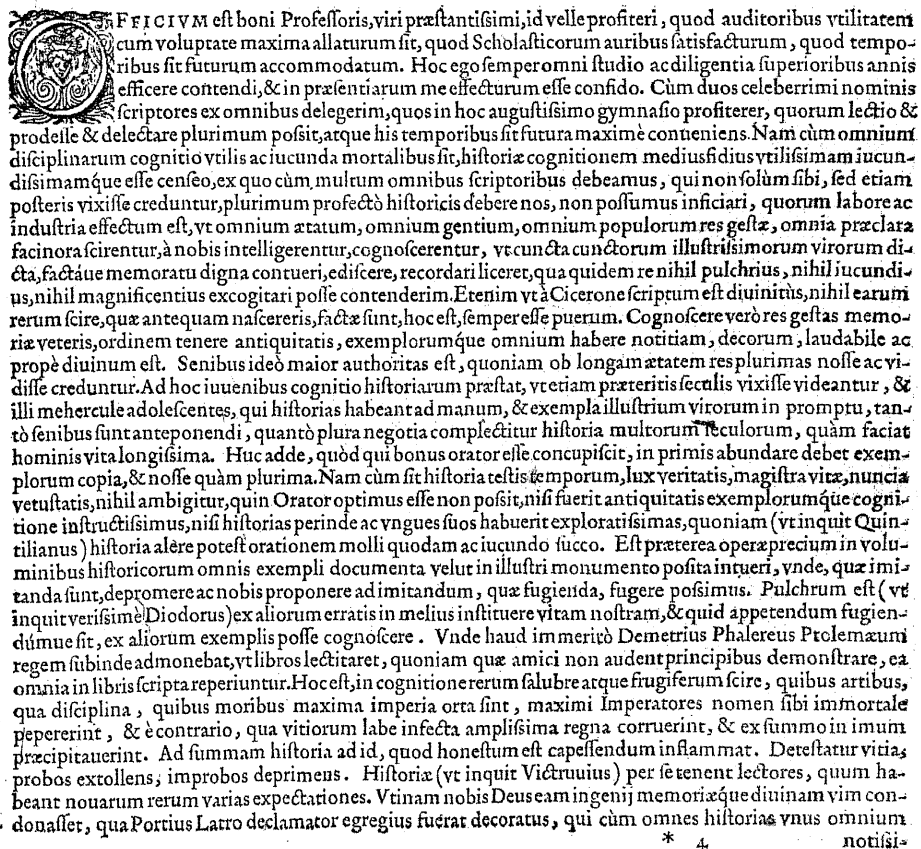 OFFICIVM est boni Professoris, viri præstantissimi, id velle profiteri, quod auditoribus vtilitatem
cum voluptate maxima allaturum sit, quod Scholasticorum auribus satisfacturum, quod tempo-
ribus sit futurum accommodatum. Hoc ego semper omni studio ac diligentia superioribus annis
efficere contendi, & in præsentiarum me effecturum esse confido. Cùm duos celeberrimi nominis
scriptores ex omnibus delegerim, quos in hoc augustissimo gymnasio profiterer, quorum lectio &
prodesse & delectare plurimum possit, atque his temporibus sit futura maximè conueniens. Nam cùm omnium
disciplinarum cognitio vtilis ac iucunda mortalibus sit, historiæ cognitionem mediusfidius vtilissimam iucun-
dissimamq́ue esse censeo, ex quo cùm multum omnibus scriptoribus debeamus, qui non solùm sibi, sed etiam
posteris vixisse creduntur, plurimum profectò historicis debere nos, non possumus inficiari, quorum labore ac
industria effectum est, vt omnium ætatum, omnium gentium, omnium populorum res gestæ, omnia præclara
facinora scirentur, à nobis intelligerentur, cognoscerentur, vt cuncta cunctorum illustrissimorum virorum di-
cta, factáue memoratu digna contueri, ediscere, recordari liceret, qua quidem re nihil pulchrius, nihil iucundi-
us, nihil magnificentius excogitari posse contenderim. Etenim vt à Cicerone scriptum est diuinitùs, nihil earum
rerum scire, quæ antequam nascereris, factæ sunt, hoc est, semper esse puerum. Cognoscere verò res gestas memo-
riæ veteris, ordinem tenere antiquitatis, exemplorumq́ue omnium habere notitiam, decorum, laudabile ac
propè diuinum est. Senibus ideò maior authoritas est, quoniam ob longam ætatem res plurimas nosse ac vi-
disse creduntur. Ad hoc iuuenibus cognitio historiarum præstat, vt etiam præteritis seculis vixisse videantur, &
illi mehercule adolescentes, qui historias habeant ad manum, & exempla illustrium virorum in promptu, tan-
tò senibus sunt anteponendi, quantò plura negotia complectitur historia multorum seculorum, quàm faciat
hominis vita longissima. Huc adde, quòd qui bonus orator esse concupiscit, in primis abundare debet exem-
plorum copia, & nosse quàm plurima. Nam cùm sit historia testis temporum, lux veritatis, magistra vitæ, nuncia
vetustatis, nihil ambigitur, quin Orator optimus esse non possit, nisi fuerit antiquitatis exemplorumq́ue cogni-
tione instructissimus, nisi historias perinde ac vngues suos habuerit exploratissimas, quoniam (vt inquit Quin-
tilianus) historia alere potest orationem molli quodam ac iucundo succo. Est præterea operæprecium in volu-
minibus historicorum omnis exempli documenta velut in illustri monumento posita intueri, vnde, quæ imi-
tanda sunt, depromere ac nobis proponere ad imitandum, quæ fugienda, fugere possimus. Pulchrum est (vt
inquit verissimè Diodorus) ex aliorum erratis in melius instituere vitam nostram, & quid appetendum fugien-
dúmue sit, ex aliorum exemplis posse cognoscere. Vnde haud immeritò Demetrius Phalereus Ptolemæum
regem subinde admonebat, vt libros lectitaret, quoniam quæ amici non audent principibus demonstrare, ea
omnia in libris scripta reperiuntur. Hoc est, in cognitione rerum salubre atque frugiferum scire, quibus artibus,
qua disciplina, quibus moribus maxima imperia orta sint, maximi Imperatores nomen sibi immortale
pepererint, & è contrario, qua vitiorum labe infecta amplissima regna corruerint, & ex summo in imum
præcipitauerint. Ad summam historia ad id, quod honestum est capessendum inflammat. Detestatur vitia,
probos extollens, improbos deprimeus. Historiæ (vt inquit Victruuius) per se tenent lectores, quum ha-
beant nouarum rerum varias expectationes. Vtinam nobis Deus eam ingenij memoriæq́ue diuinam vim con-
donasset, qua Portius Latro declamator egregius fuerat decoratus, qui cùm omnes historias vnus omnium
* 4 notissi-